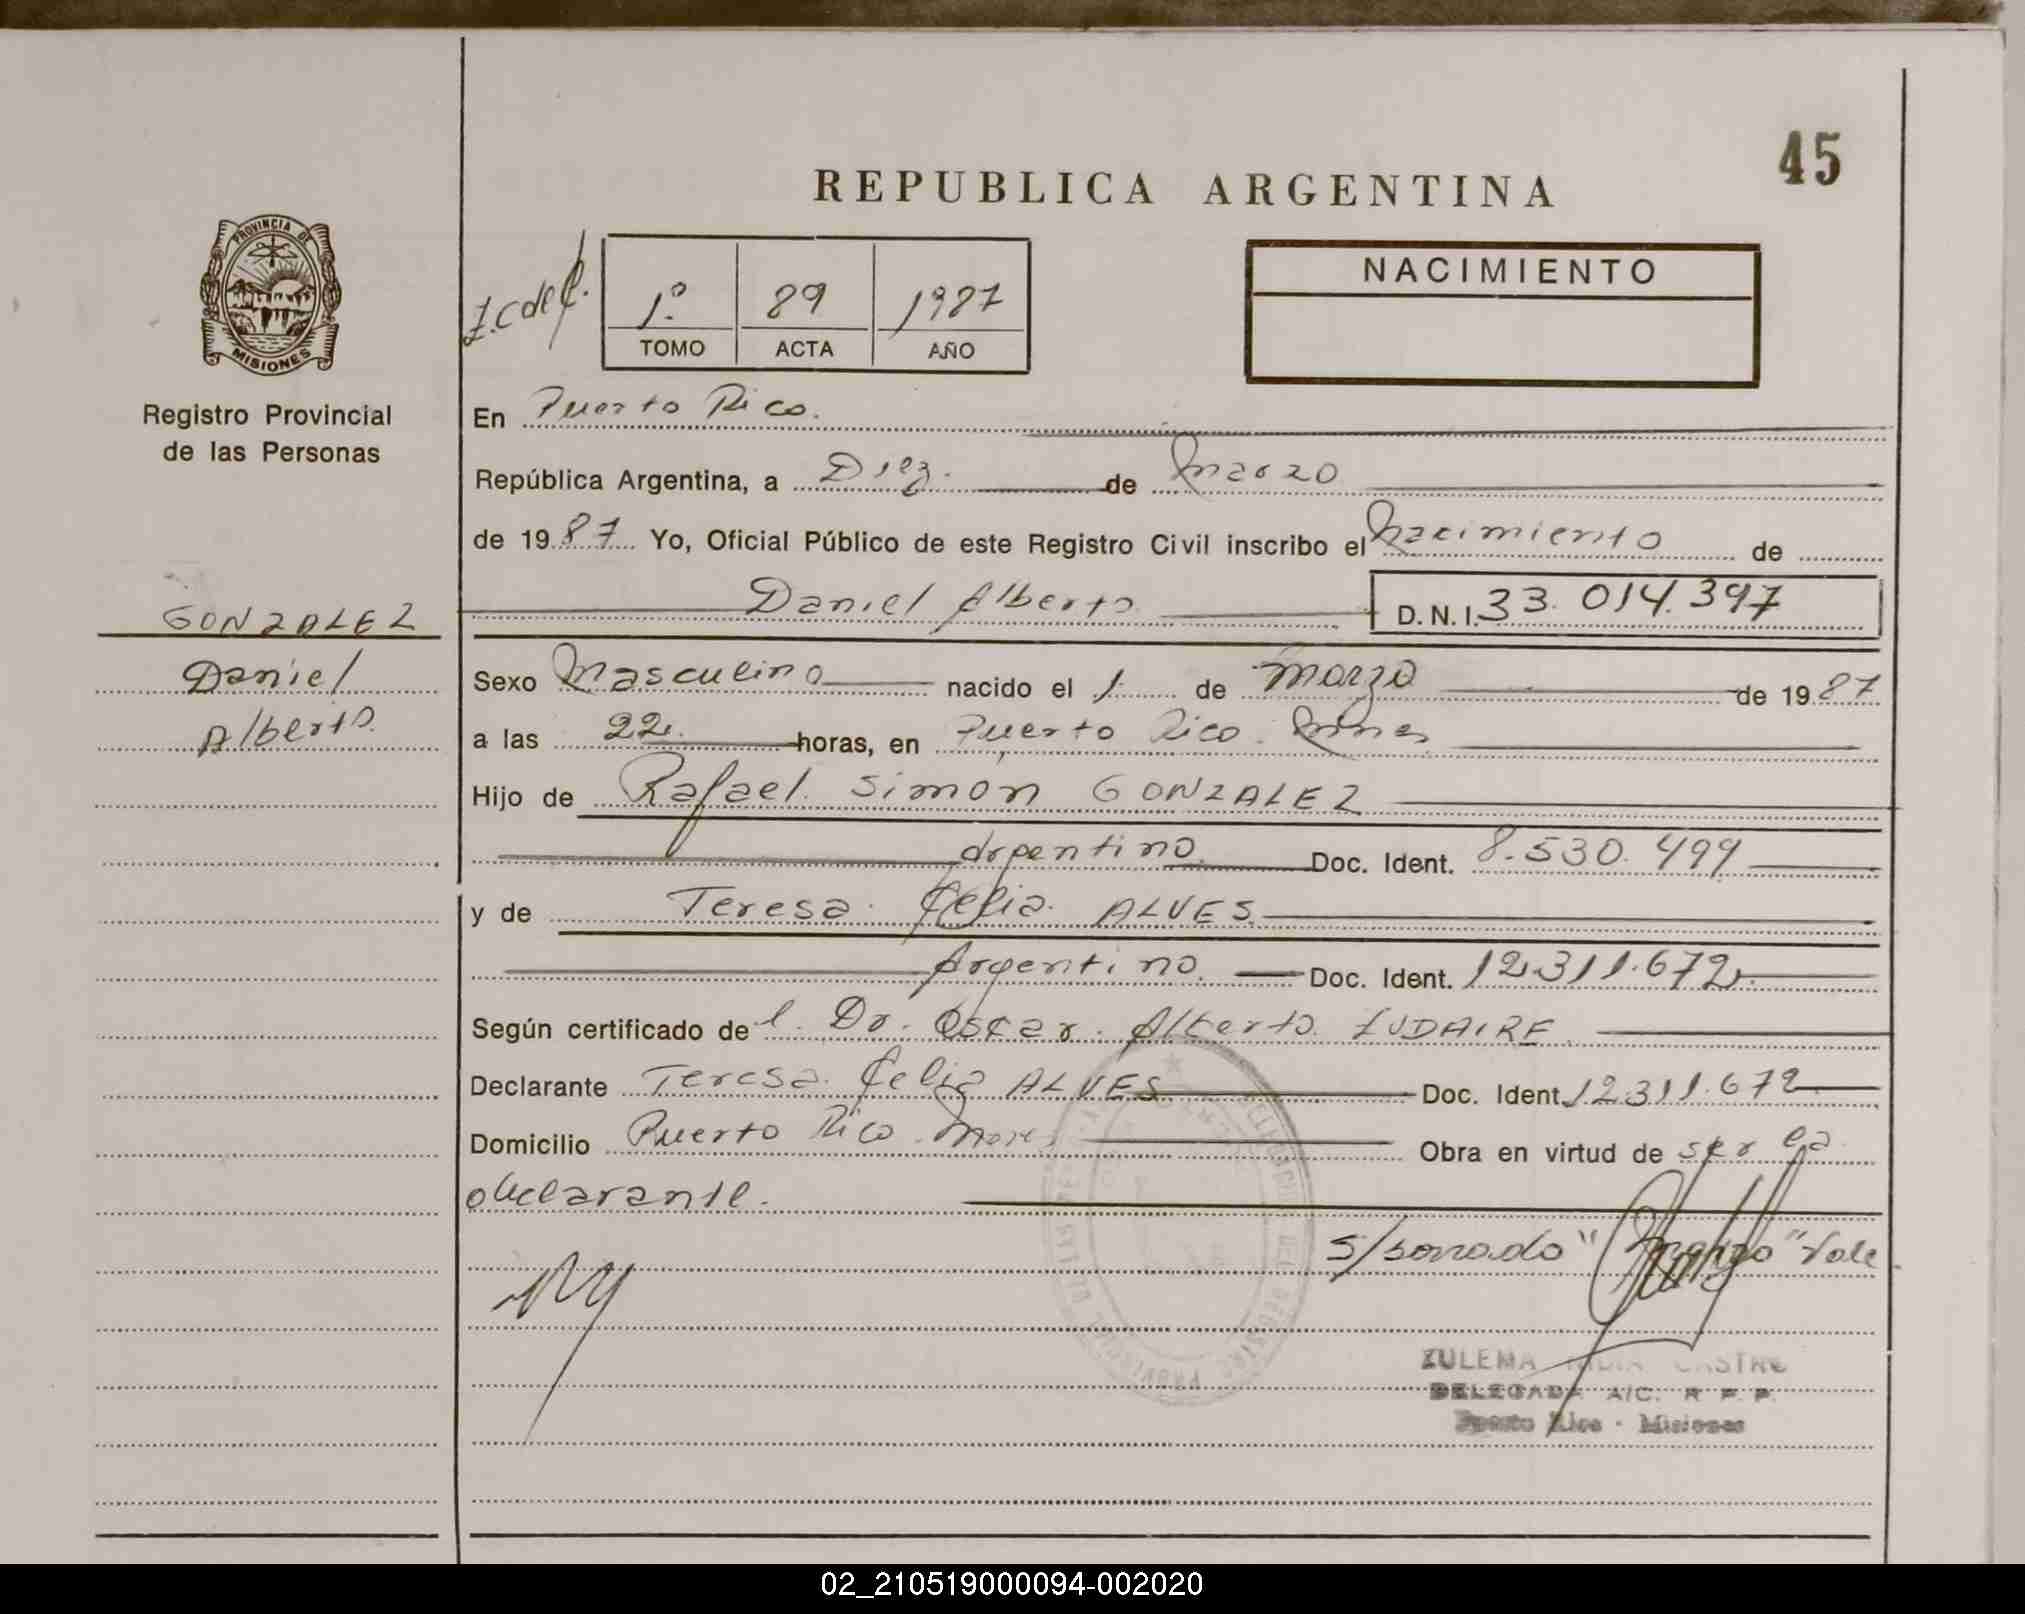 45
REPUBLICA ARGENTINA
PROVINCIA DE
MISIONES
Registro Provincial
de las Personas
1º 89 1987
TOMO ACTA AÑO
NACIMIENTO
En Puerto Rico.
República Argentina, a Diez. de Marzo
de 1987 Yo, Oficial Público de este Registro Civil inscribo el Nacimiento de
GONZALEZ
Daniel
Alberto.
Daniel Alberto D.N.I. 33.014.397
Sexo Masculino nacido el 1 de Marzo de 1987
a las 22. horas, en Puerto Rico. Mnes
Hijo de Rafael Simón GONZALEZ
Argentino Doc. Ident. 8.530.499
y de Teresa Celia ALVES
Argentino. Doc. Ident. 12.311.672
Según certificado del Dr. Oscar Alberto LUDAIRE
Declarante Teresa Celia ALVES Doc. Ident. 12.311.672
Domicilio Puerto Rico. Mnes Obra en virtud de ser la
declarante.
S/borrado "Marzo" Vale
ZULEMA CASTRO
DELEGADA A/C. R. P. P.
Puerto Rico - Misiones
02_210519000094-002020